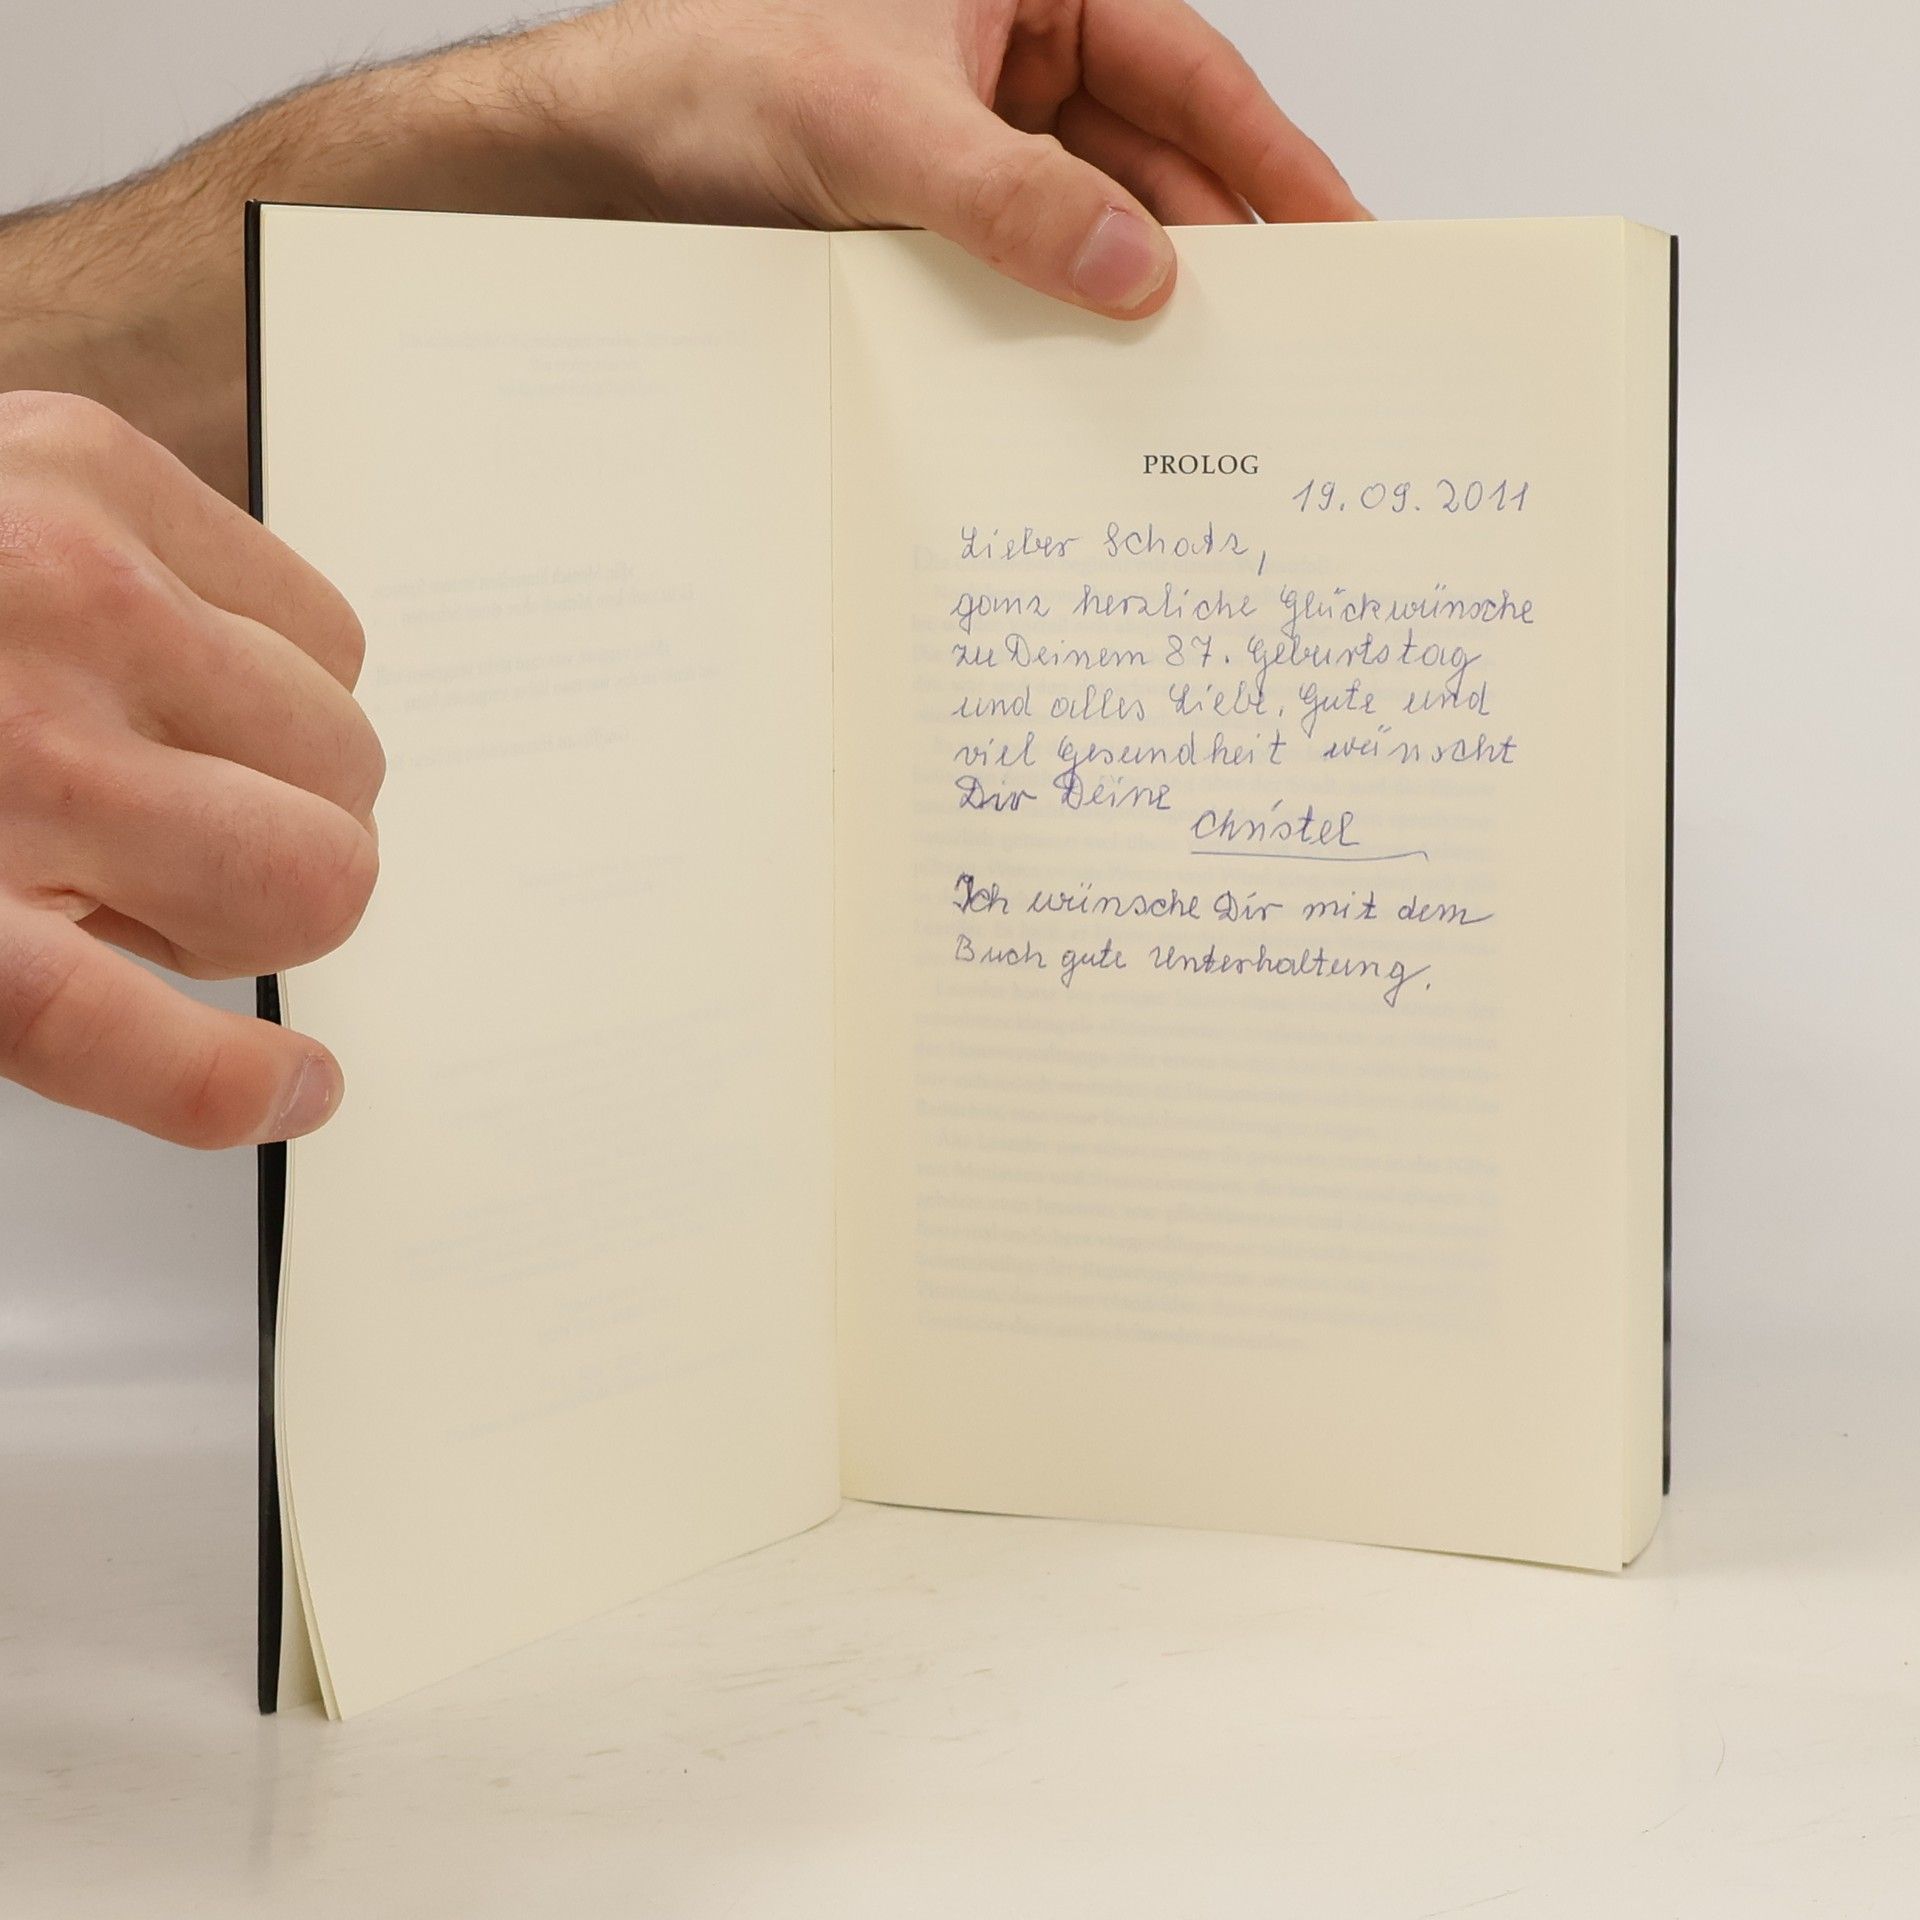 PROLOG
19.09.2011
Lieber Schatz,
ganz herzliche Glückwünsche
zu Deinem 87. Geburtstag
und alles Liebe, Gute und
viel Gesundheit wünscht
Dir Deine
Christel
Ich wünsche Dir mit dem
Buch gute Unterhaltung.